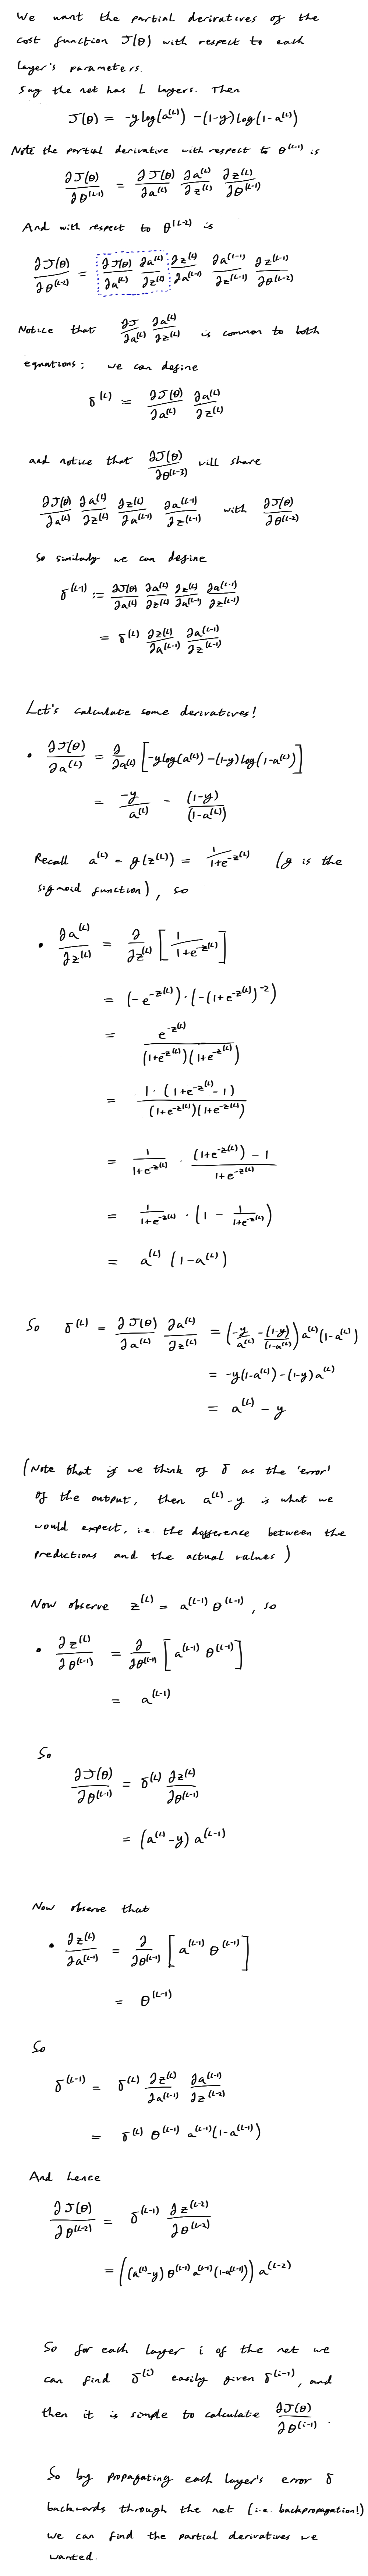 We want the partial derivatives of the
cost function J(θ) with respect to each
layer's parameters.
Say the net has L layers. Then
J(θ) = -y log(a^(L)) - (1-y) log(1-a^(L))
Note the partial derivative with respect to θ^(L-1) is
∂J(θ)/∂θ^(L-1) = ∂J(θ)/∂a^(L) ∂a^(L)/∂z^(L) ∂z^(L)/∂θ^(L-1)
And with respect to θ^(L-2) is
∂J(θ)/∂θ^(L-2) = ∂J(θ)/∂a^(L) ∂a^(L)/∂z^(L) ∂z^(L)/∂a^(L-1) ∂a^(L-1)/∂z^(L-1) ∂z^(L-1)/∂θ^(L-2)
Notice that ∂J/∂a^(L) ∂a^(L)/∂z^(L) is common to both
equations; we can define
δ^(L) := ∂J(θ)/∂a^(L) ∂a^(L)/∂z^(L)
and notice that ∂J(θ)/∂θ^(L-3) will share
∂J(θ)/∂a^(L) ∂a^(L)/∂z^(L) ∂z^(L)/∂a^(L-1) ∂a^(L-1)/∂z^(L-1) with ∂J(θ)/∂θ^(L-2)
So similarly we can define
δ^(L-1) := ∂J(θ)/∂a^(L) ∂a^(L)/∂z^(L) ∂z^(L)/∂a^(L-1) ∂a^(L-1)/∂z^(L-1)
= δ^(L) ∂z^(L)/∂a^(L-1) ∂a^(L-1)/∂z^(L-1)
Let's calculate some derivatives!
• ∂J(θ)/∂a^(L) = ∂/∂a^(L) [-y log(a^(L)) - (1-y) log(1-a^(L))]
= -y/a^(L) - (1-y)/(1-a^(L))
Recall a^(L) = g(z^(L)) = 1/(1+e^-z^(L)) (g is the
sigmoid function), so
• ∂a^(L)/∂z^(L) = ∂/∂z^(L) [1/(1+e^-z^(L))]
= (-e^-z^(L)) · (-(1+e^-z^(L))^-2)
= e^-z^(L)/((1+e^-z^(L))(1+e^-z^(L)))
= 1·(1+e^-z^(L) - 1)/((1+e^-z^(L))(1+e^-z^(L)))
= 1/(1+e^-z^(L)) · ((1+e^-z^(L)) - 1)/(1+e^-z^(L))
= 1/(1+e^-z^(L)) · (1 - 1/(1+e^-z^(L)))
= a^(L) (1-a^(L))
So δ^(L) = ∂J(θ)/∂a^(L) ∂a^(L)/∂z^(L) = (-y/a^(L) - (1-y)/(1-a^(L))) a^(L)(1-a^(L))
= -y(1-a^(L)) - (1-y)a^(L)
= a^(L) - y
(Note that if we think of δ as the 'error'
of the output, then a^(L)-y is what we
would expect, i.e. the difference between the
predictions and the actual values)
Now observe z^(L) = a^(L-1) θ^(L-1), so
• ∂z^(L)/∂θ^(L-1) = ∂/∂θ^(L-1) [a^(L-1) θ^(L-1)]
= a^(L-1)
So
∂J(θ)/∂θ^(L-1) = δ^(L) ∂z^(L)/∂θ^(L-1)
= (a^(L)-y) a^(L-1)
Now observe that
• ∂z^(L)/∂a^(L-1) = ∂/∂θ^(L-1) [a^(L-1) θ^(L-1)]
= θ^(L-1)
So
δ^(L-1) = δ^(L) ∂z^(L)/∂a^(L-1) ∂a^(L-1)/∂z^(L-2)
= δ^(L) θ^(L-1) a^(L-1)(1-a^(L-1))
And hence
∂J(θ)/∂θ^(L-2) = δ^(L-1) ∂z^(L-2)/∂θ^(L-2)
= ((a^(L)-y) θ^(L-1) a^(L-1)(1-a^(L-1))) a^(L-2)
So for each layer i of the net we
can find δ^(i) easily given δ^(i-1), and
then it is simple to calculate ∂J(θ)/∂θ^(i-1).
So by propagating each layer's error δ
backwards through the net (i.e. backpropagation!)
we can find the partial derivatives we
wanted.